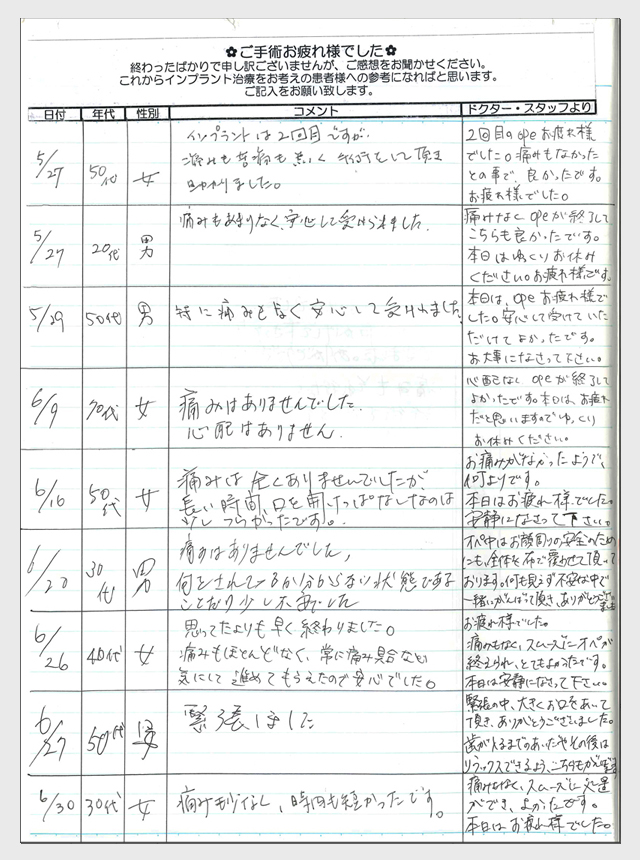 ✿ご手術お疲れ様でした✿
終わったばかりで申し訳ございませんが、ご感想をお聞かせください。
これからインプラント治療をお考えの患者様への参考になればと思います。
ご記入をお願い致します。
日付 年代 性別 コメント ドクター・スタッフより
5/27 50代 女
インプラントは2回目ですが
痛みも苦痛も無く 手術をして頂き
助かりました。
2回目のopeお疲れ様
でした。痛みもなかった
との事で、良かったです。
お疲れ様でした。
5/27 20代 男
痛みもあまりなく、安心して受けられました。
痛みなくopeが終了して
こちらも良かったです。
本日はゆっくりお休み
ください。お疲れ様です。
5/29 50代 男
特に痛みもなく安心して受けれました。
本日は、opeお疲れ様で
した。安心して受けていた
だけてよかったです。
お大事になさって下さい。
6/9 70代 女
痛みはありませんでした
心配はありません
心配なく opeが終了して
よかったです。本日は、お疲れ
だと思いますのでゆっくり
お休みください。
6/16 50代 女
痛みは全くありませんでしたが
長い時間、口を開けっぱなしなのは
少しつらかったです。
お痛みがなかったようで、
何よりです。
本日はお疲れ様でした。
安静になさって下さい。
6/20 30代 男
痛みはありませんでした。
何をされているか分からない状態である
ことなり少し不安でした
オペ中はお顔周りの安全のため
にも、全体を布で覆わせて頂いて
おります。何も見えず不安な中で
一緒にがんばって頂き、ありがとうございました
6/26 40代 女
思ってたよりも早く終わりました。
痛みもほとんどなく、常に痛み具合など
気にして進めてもらえたので安心でした。
お疲れ様でした。
痛みもなく、スムーズにオペが
終えられ、とてもよかったです。
本日は安静になさって下さい。
6/27 50代 女
緊張しました
緊張の中、大きくお口をあいて
頂き、ありがとうございました。
歯が入るまでのあいだやその後は
リラックスできるよう、こちらもがんばります
6/30 30代 女
痛みも少なく、時間も短かったです。
痛みもなく、スムーズに処置
ができ、よかったです。
本日はお疲れ様でした。